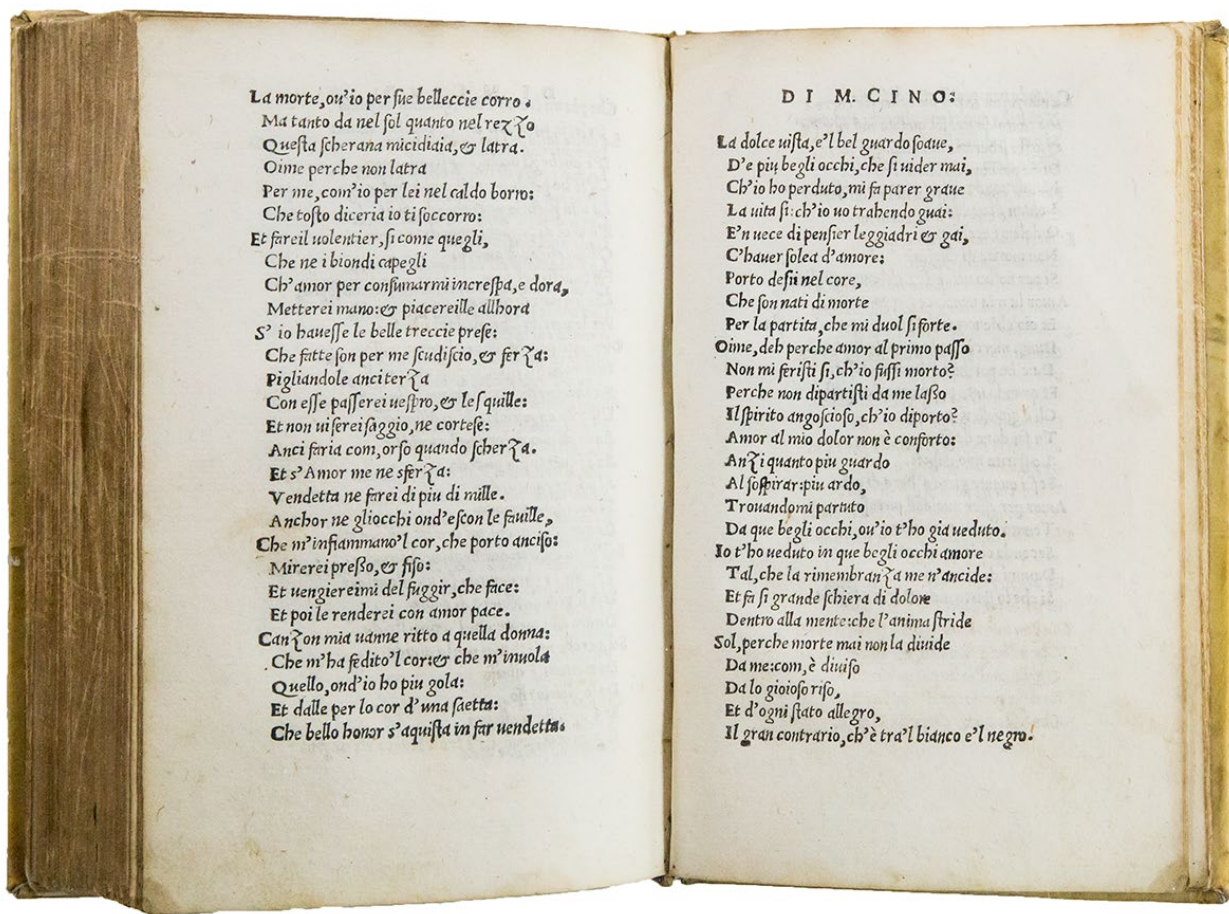 La morte,ou'io per sue belleccie corro.
Ma tanto da nel sol quanto nel rezzo
Questa scherana micidiaia,& latra.
Oime perche non latra
Per me,com'io per lei nel caldo borro:
Che tosto diceria io ti soccorro:
Et fareil uolentier,si come quegli,
Che ne i biondi capegli
Ch'amor per consumarmi increspa,e dora,
Metterei mano:& piacereille allhora
S' io hauesse le belle treccie prese:
Che fatte son per me scudiscio,& ferza:
Pigliandole anci terza
Con esse passerei uespro,& le squille:
Et non ui serei saggio,ne cortese:
Anci faria com,orso quando scherza.
Et s'Amor me ne sferza:
Vendetta ne farei di piu di mille.
Anchor ne gliocchi ond'escon le fauille,
Che m'infiammano'l cor,che porto anciso:
Mirerei presso,& fiso:
Et uengiereimi del fuggir,che face:
Et poi le renderei con amor pace.
Canzon mia uanne ritto a quella donna:
Che m'ha fedito'l cor:& che m'inuola
Quello,ond'io ho piu gola:
Et dalle per lo cor d'una saetta:
Che bello honor s'aquista in far uendetta.
DI M. CINO:
La dolce uista,e'l bel guardo soaue,
D'e piu begli occhi,che si uider mai,
Ch'io ho perduto,mi fa parer graue
La uita si:ch'io uo trahendo guai:
E'n uece di pensier leggiadri & gai,
C'hauer solea d'amore:
Porto desii nel core,
Che son nati di morte
Per la partita,che mi duol si forte.
Oime,deh perche amor al primo passo
Non mi feristi si,ch'io fussi morto?
Perche non dipartisti da me lasso
Il spirito angoscioso,ch'io diporto?
Amor al mio dolor non è conforto:
Anzi quanto piu guardo
Al sospirar:piu ardo,
Trouandomi partuto
Da que begli occhi,ou'io t'ho gia ueduto.
Io t'ho ueduto in que begli occhi amore
Tal,che la rimembranza me n'ancide:
Et fa si grande schiera di dolore
Dentro alla mente:che l'anima stride
Sol,perche morte mai non la diuide
Da me:com,è diuiso
Da lo gioioso riso,
Et d'ogni stato allegro,
Il gran contrario,ch'è tra'l bianco e'l negro.